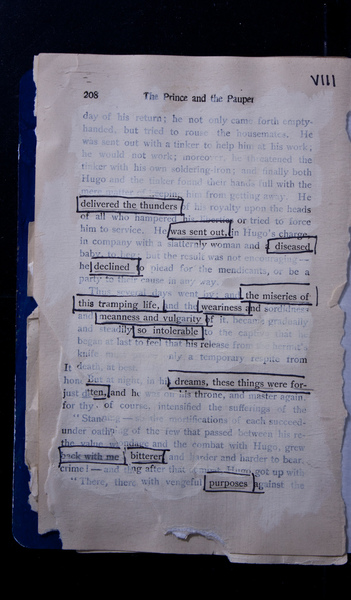 VIII
208 The Prince and the Pauper
day of his return; he not only came forth empty-
handed, but tried to rouse the housemates. He
was sent out with a tinker to help him at his work;
he would not work; moreover, he threatened the
tinker with his own soldering-iron; and finally both
Hugo and the tinker found their hands full with the
mere matter of keeping him from getting away. He
delivered the thunders of his royalty upon the heads
of all who hampered his liberties or tried to force
him to service. He was sent out, in Hugo's charge,
in company with a slatternly woman and a diseased
baby, to beg; but the result was not encouraging—
he declined to plead for the mendicants, or be a
party to their cause in any way.
Thus several days went by; and the miseries of
this tramping life, and the weariness and sordidness
and meanness and vulgarity of it, became gradually
and steadily so intolerable to the captive that he
began at last to feel that his release from the hermit's
knife must prove only a temporary respite from
It death, at best.
hon But at night, in his dreams, these things were for-
just gotten, and he was on his throne, and master again.
for thy of course, intensified the sufferings of the
"Stan the mortifications of each succeed-
under oath ing of the few that passed between his re-
the value bondage and the combat with Hugo, grew
back with me bitterer and harder and harder to bear.
crime!—and ing after that combat Hugo got up with
"There, there with vengeful purposes against the